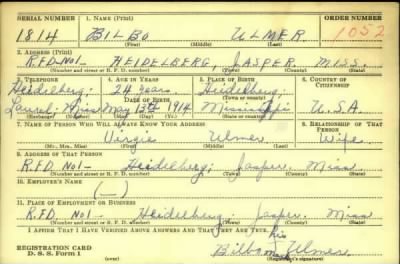 SERIAL NUMBER 1. NAME (Print) ORDER NUMBER
1814 BILBO ULMER 1052
(First) (Middle) (Last)
2. ADDRESS (Print)
R.F.D-NO1- HEIDELBERG, JASPER, MISS.
(Number and street or R. F. D. number) (Town) (County) (State)
3. TELEPHONE 4. AGE IN YEARS 5. PLACE OF BIRTH 6. COUNTRY OF CITIZENSHIP
Heidelberg; 24 years Heidelberg;
DATE OF BIRTH (Town or county)
Laurel, Miss May 1914 Mississippi U.S.A.
(Exchange) (Number) (Mo.) (Day) (Yr.) (State or country)
7. NAME OF PERSON WHO WILL ALWAYS KNOW YOUR ADDRESS 8. RELATIONSHIP OF THAT PERSON
Virgie Ulmer Wife
(Mr., Mrs., Miss) (First) (Middle) (Last)
9. ADDRESS OF THAT PERSON
R.F.D No1- Heidelberg; Jasper. Miss
(Number and street or R. F. D. number) (Town) (County) (State)
10. EMPLOYER'S NAME
(—)
11. PLACE OF EMPLOYMENT OR BUSINESS
R.F.D No1- Heidelberg; Jasper. Miss
(Number and street or R. F. D. number) (Town) (County) (State)
I AFFIRM THAT I HAVE VERIFIED ABOVE ANSWERS AND THAT THEY ARE TRUE.
his
REGISTRATION CARD Bilbo Ulmer
D. S. S. Form 1 (over) mark (Registrant's signature)